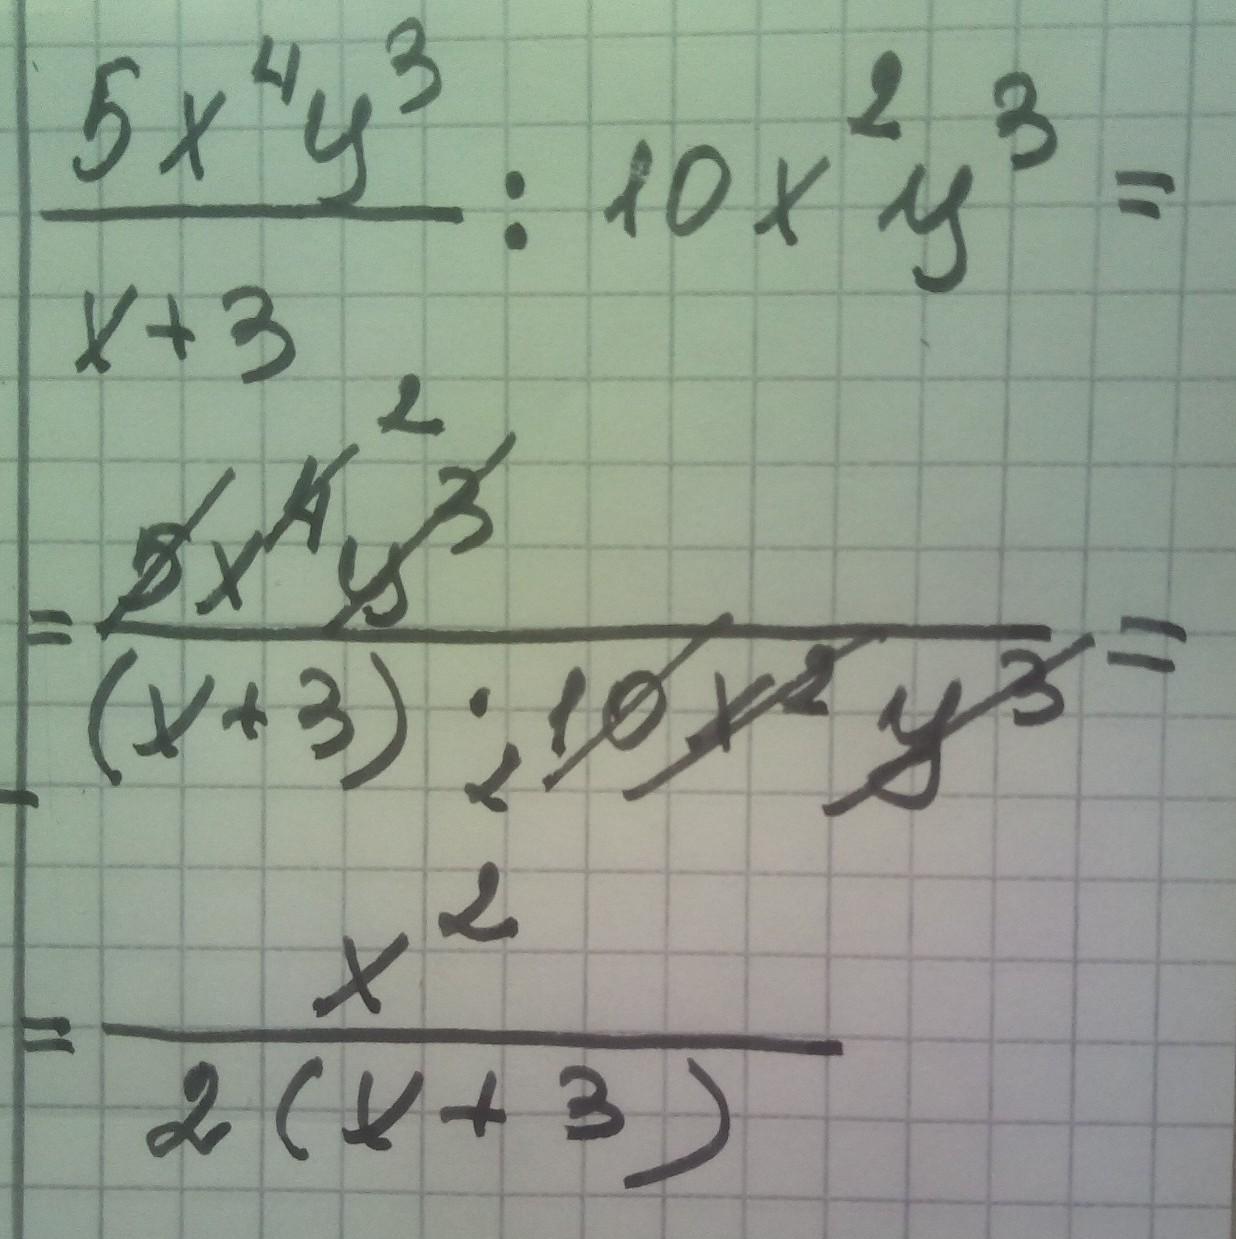 5x⁴y³
───── : 10x²y³ =
x+3
= 5x⁴ ² y³
───────────── =
(x+3) · 2 10x²y³
= x²
─────
2(x+3)